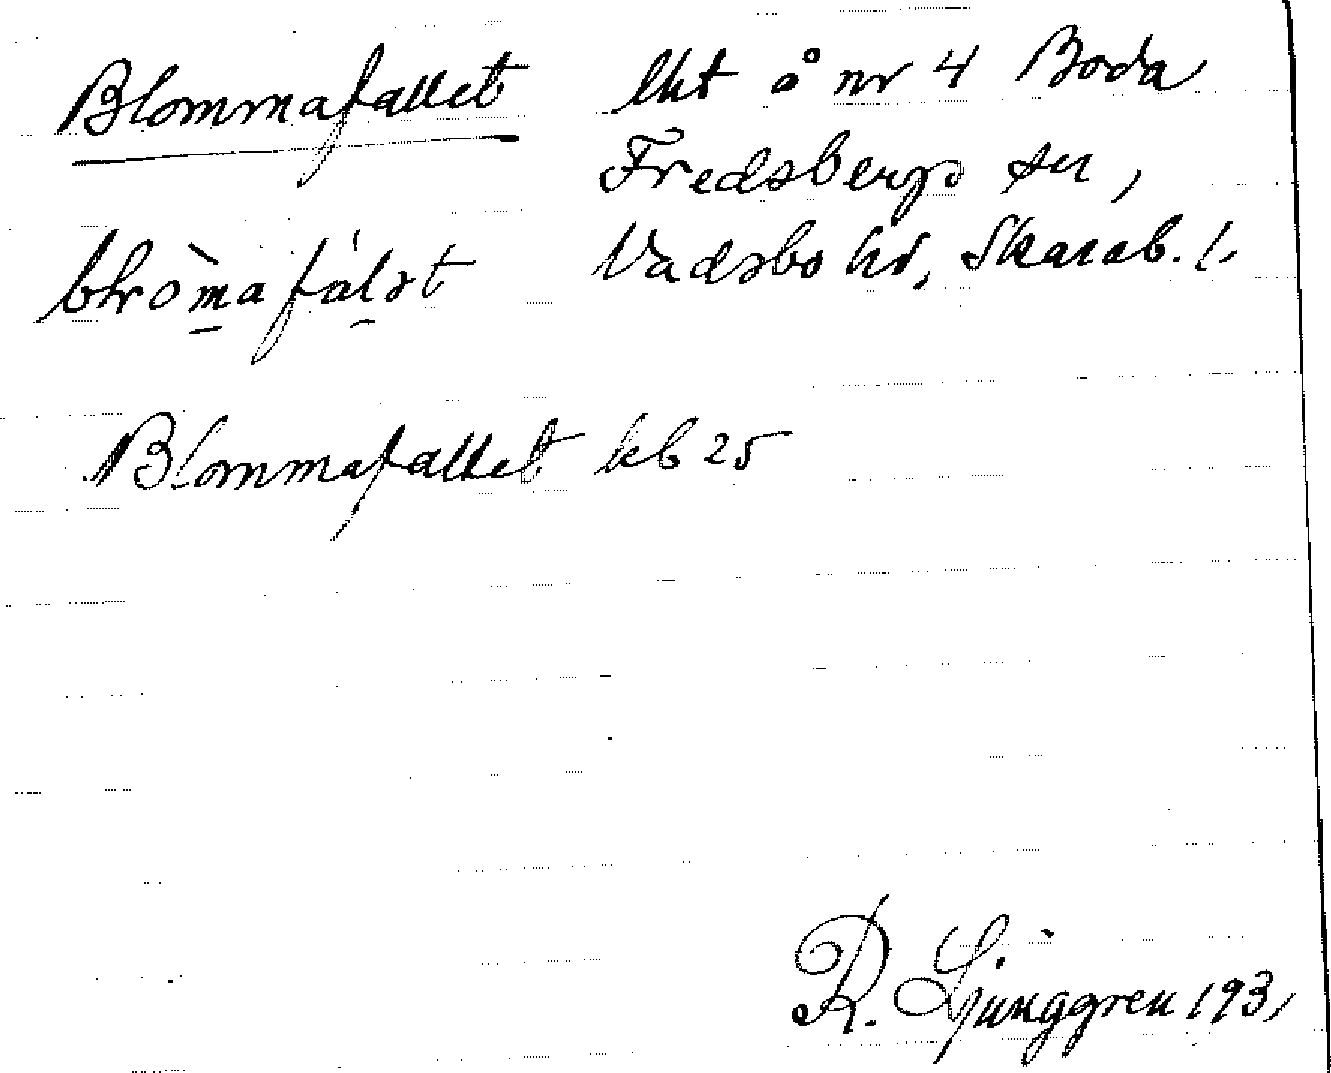 Blommafallet lht å nr 4 Boda
Fredsbergs sn,
Vadsbo hd, Skarab. l.
Blommafallet hb 25
R. Ljunggren 1931